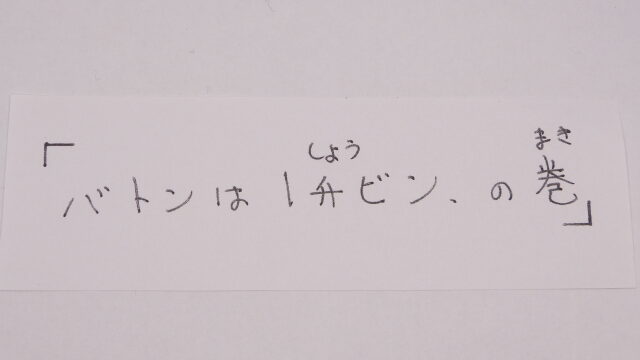 「バトンは1升ビン、の巻」
しょう
まき